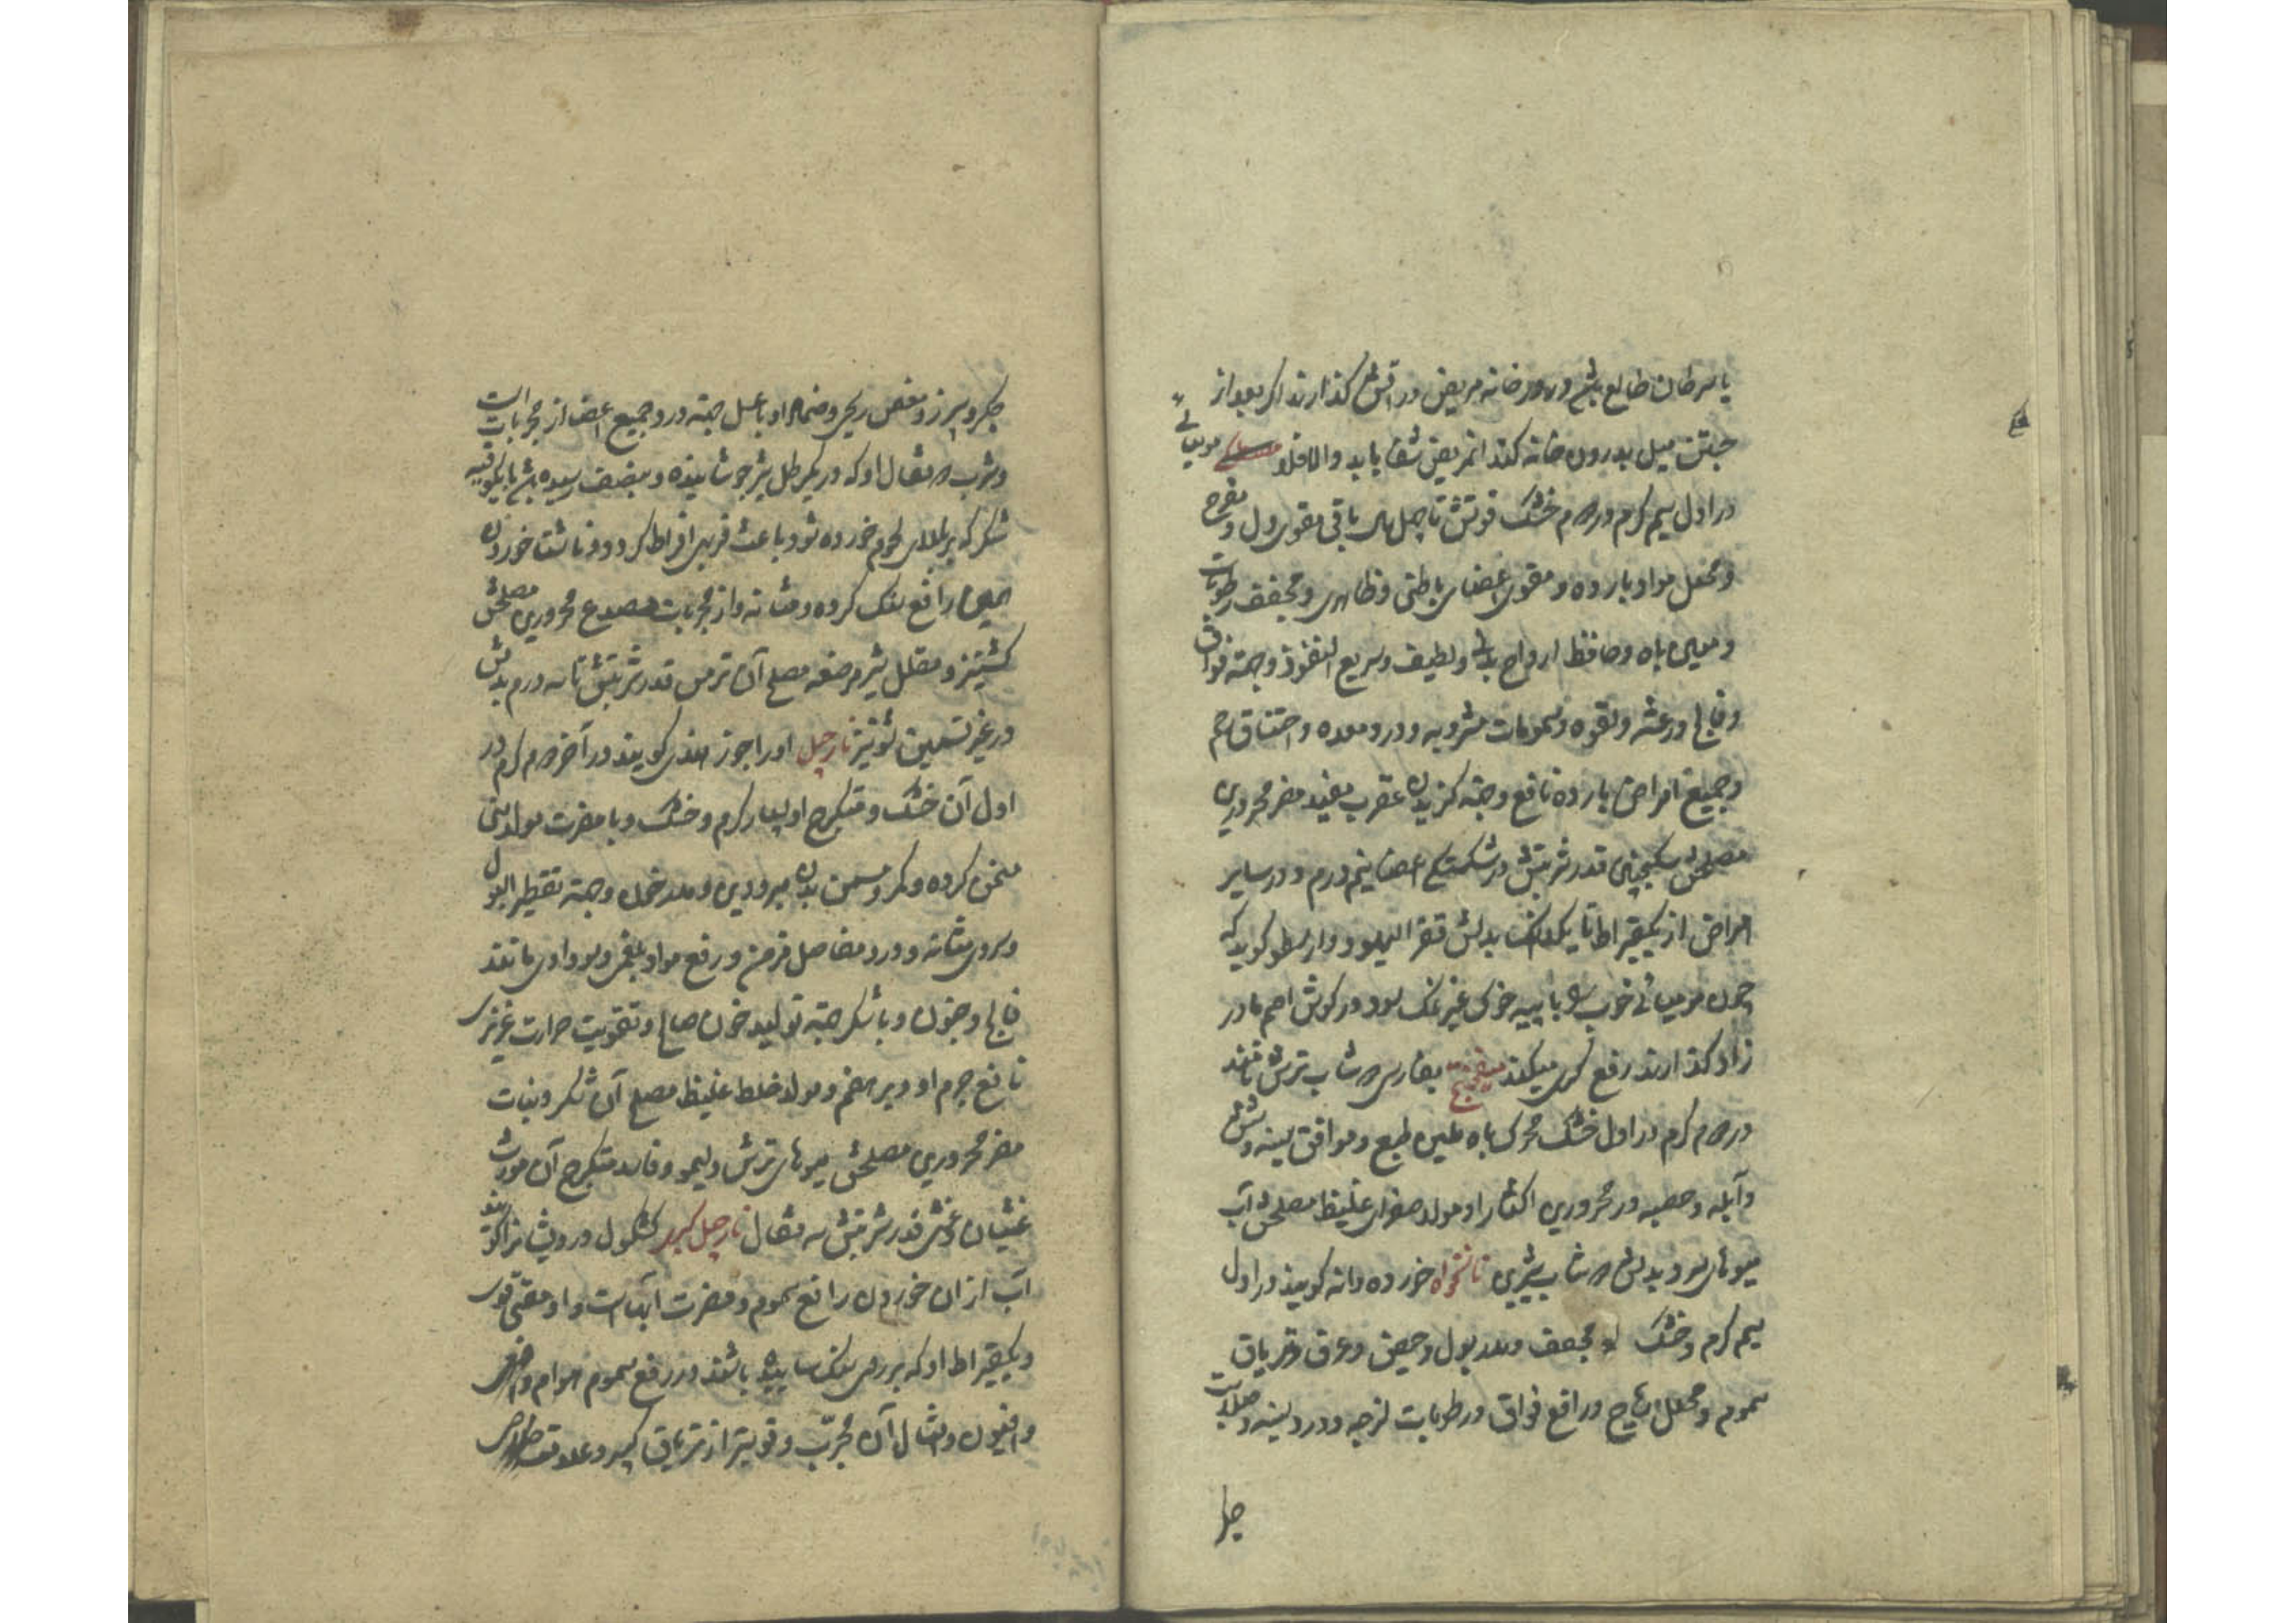 یا سرطان طالع باشد و در خانه مریض در آتش گذارند اگر بعد از
جستن میل بدرون خانه کند آنمریض شفا یابد والا فلا مومیائی
در اول سیم گرم و در دوم خشک قوتش تا چهل سال باقی مقوی دل و مفرح
و محلل مواد بارده و مقوی اعضای باطنی و ظاهری و مجفف رطوبات
و معین باه و حافظ ارواح بدنی و لطیف و سریع النفوذ و جهة فواق
و فالج و رعشه و لقوه و سمومات مشروبه و درد معده و اختناق رحم
و جمیع امراض بارده نافع و جهة گزیدن عقرب مفید مضر محرورین
مصلحش سکنجبین قدر شربتش در شکستگی اعضا نیم درم و در سایر
امراض از یکقیراط تا یکدانگ بدلش قفر الیهود و ارسطو گوید که
چون مومیائی خوب را با پیه خوک غیر نمک سود در گوش اصم مادر
زاد گذارند رفع کری میکند میفختج بفارسی دوشاب ترش نامند
در دوم گرم در اول خشک محرک باه ملین طبع و موافق سینه و شش
و آبله و حصبه و در محرورین اکثار او مولد صفرای غلیظ مصلحش آب
میوهای سرد بدلش دوشاب شیرین نانخواه خورده دانه گویند در اول
سیم گرم و خشک مجفف و مدر بول و حیض و عرق و تریاق
سموم و محلل ریاح و رافع فواق و رطوبات لزجه و درد سینه و صلابت
جگر و سپرز و مغص ریحی و ضماد او با عسل جهة درد جمیع اعضا از مجربات است
و شرب دو مثقال او که در یکرطل شیر جوشانیده و بنصف رسیده باشد با یکوقیه
شکر که بر بالای لحوم خورده شود باعث فربهی افراط گردد و ناشتا خوردن
همین رافع سنگ گرده و مثانه و از مجربات مصدع محرورین مصلحش
کشنیز و مقلل شیر مرضعه مصلح آن ترمس قدر شربتش تا سه درم بدلش
در غیر تسمین شونیز نارجیل او را جوز هندی گویند در آخر دوم گرم و در
اول آن خشک و متکرج او بسیار گرم و خشک و با مضرت مولد منی
مسخن گرده و کمر و مسمن بدن مبرودین و مولد خون و جهة تقطیر البول
و سردی مثانه و درد مفاصل مزمن و رفع مواد بلغمی و سوداوی مانند
فالج و جنون و با شکر جهة تولید خون صالح و تقویت حرارت غریزی
نافع جرم او دیر هضم و مولد خلط غلیظ مصلح آن شکر و نبات
مضر محرورین مصلحش میوهای ترش و لیمو و فاسد متکرج آن مورث
غثیان و غشی قدر شربتش سه مثقال نارجیل کبیر کشکول درویشانرا گویند
آب از آن خوردن رافع سموم و مضرت آبهاست و او مقئی قوی
و یکقیراط او که بر روی سنگ ساییده باشند در رفع سموم هوام و افعی
و افیون و امثال آن مجرب و قویتر از تریاق کبیر و علامت خلاصی